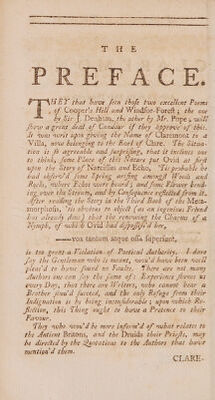 THE
PREFACE.
THEY that have seen those two excellent Poems
of Cooper's Hill and Windsor-Forest; the one
by Sir J. Denham, the other by Mr. Pope; will
show a great deal of Candour if they approve of this.
It was writ upon giving the Name of Claremont to a
Villa, now belonging to the Earl of Clare. The Situa-
tion is so agreeable and surprizing, that it inclines one
to think, some Place of this Nature put Ovid at first
upon the Story of Narcissus and Echo. 'Tis probable he
had observ'd some Spring arising amongst Woods and
Rocks, where Echos were heard; and some Flower bend-
ing over the Stream, and by Consequence reflected from it.
After reading the Story in the Third Book of the Meta-
morphosis, 'tis obvious to object (as an ingenious Friend
has already done) that the renewing the Charms of a
Nymph, of which Ovid had dispossess'd her,
—vox tantum atque ossa supersunt,
is too great a Violation of Poetical Authority. I dare
say the Gentleman who is meant, wou'd have been well
pleas'd to have found no Faults. There are not many
Authors one can say the same of: Experience shows us
every Day, that there are Writers, who cannot bear a
Brother should succeed, and the only Refuge from their
Indignation is by being inconsiderable; upon which Re-
flection, this Thing ought to have a Pretence to their
Favour.
They who wou'd be more inform'd of what relates to
the Antient Britons, and the Druids their Priests, may
be directed by the Quotations to the Authors that have
mention'd them.
CLARE-